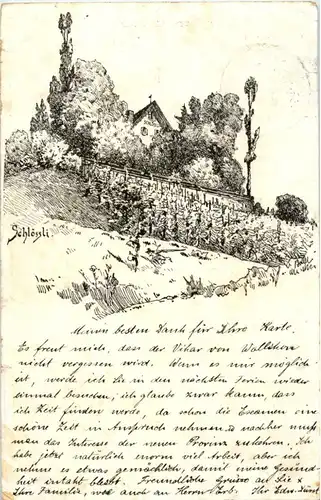 Schlössli.
Meinen besten Dank für Ihre Karte.
Es freut mich, dass der Vikar von
nicht vergessen wird. Wenn es mir möglich
ist, werde ich Sie in den nächsten Ferien wieder
einmal besuchen, ich glaube zwar kaum, dass
ich Zeit finden werde, da schon die Examen eine
schöne Zeit in Anspruch nehmen, u. nachher muss
man das Interesse der neuen Provinz zukehren. Ich
habe jetzt natürlich enorm viel Arbeit, aber ich
nehme es etwas gemächlich, damit meine Gesund-
heit intakt bleibt. Freundliche Grüsse an Sie &
Ihre Familie, auch an Herrn Ihr